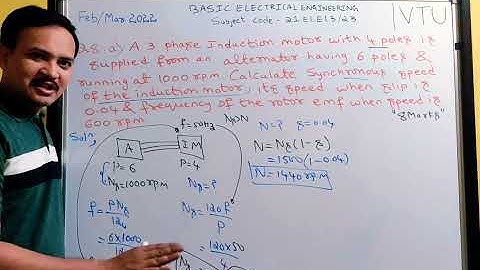 Feb/Mar 2022
BASIC ELECTRICAL ENGINEERING
Subject code - 21ELE13/23
VTU
Q.8. a) A 3 phase Induction motor with 4 poles is
supplied from an alternator having 6 poles &
running at 1000 rpm. Calculate Synchronous speed
of the induction motor, its speed when slip is
0.04 & frequency of the rotor emf when speed is
600 rpm
"8Marks"
Soln,
f=50Hz
A
IM
P=6
P=4
Ns=1000rpm
Ns=?
f = PNs/120
= 6x1000
Ns = 120f/P
= 120x50/4
N=? s=0.04
N=Ns(1-s)
=1500(1-0.04)
N=1440rpm